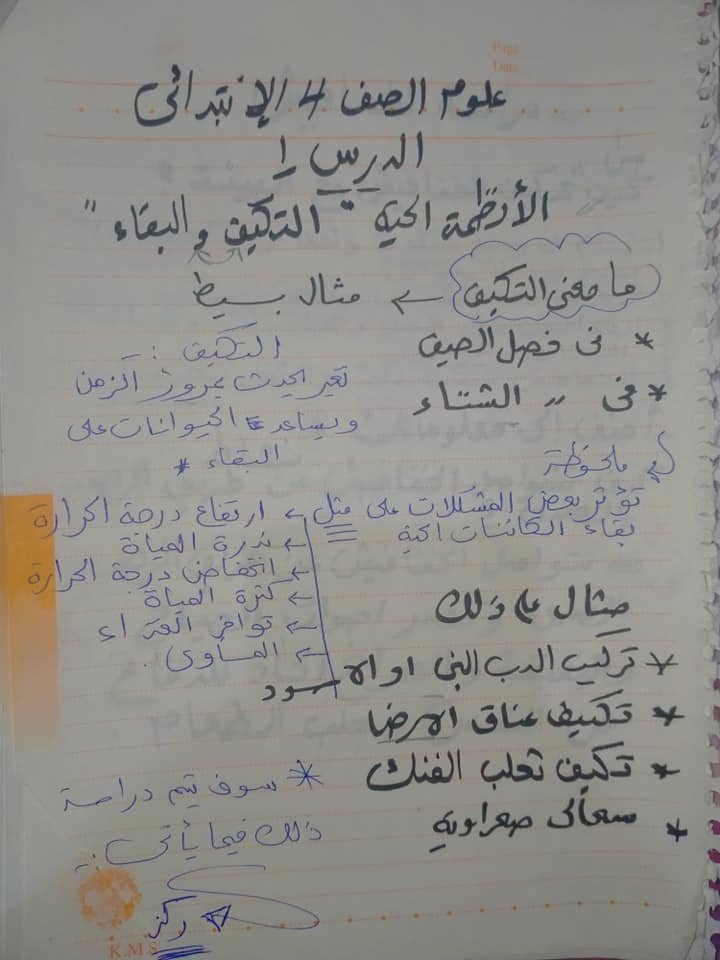 Page
Date
علوم الصف 4 الإبتدائى
الدرس 1
الأنظمة الحية "التكيف والبقاء"
ما معنى التكيف ← مثال بسيط
* فى فصل الصيف
* فى 〃 الشتاء
التكيف :-
تغير يحدث بمرور الزمن
ويساعد الحيوانات على
البقاء *
ملحوظة
تؤثر بعض المشكلات على
بقاء الكائنات الحية
مثل ← ارتفاع درجة الحرارة
← ندرة المياة
← انخفاض درجة الحرارة
← كثرة المياة
← توافر الغذاء
← المساوى
مثال على ذلك
* تركيب الدب البنى او الاسود
* تكيف عناق الارض
* تكيف ثعلب الفنك
* سحالى صحراوية
* سوف يتم دراسة
ذلك فيما يأتى :-
ركز
K.M.S